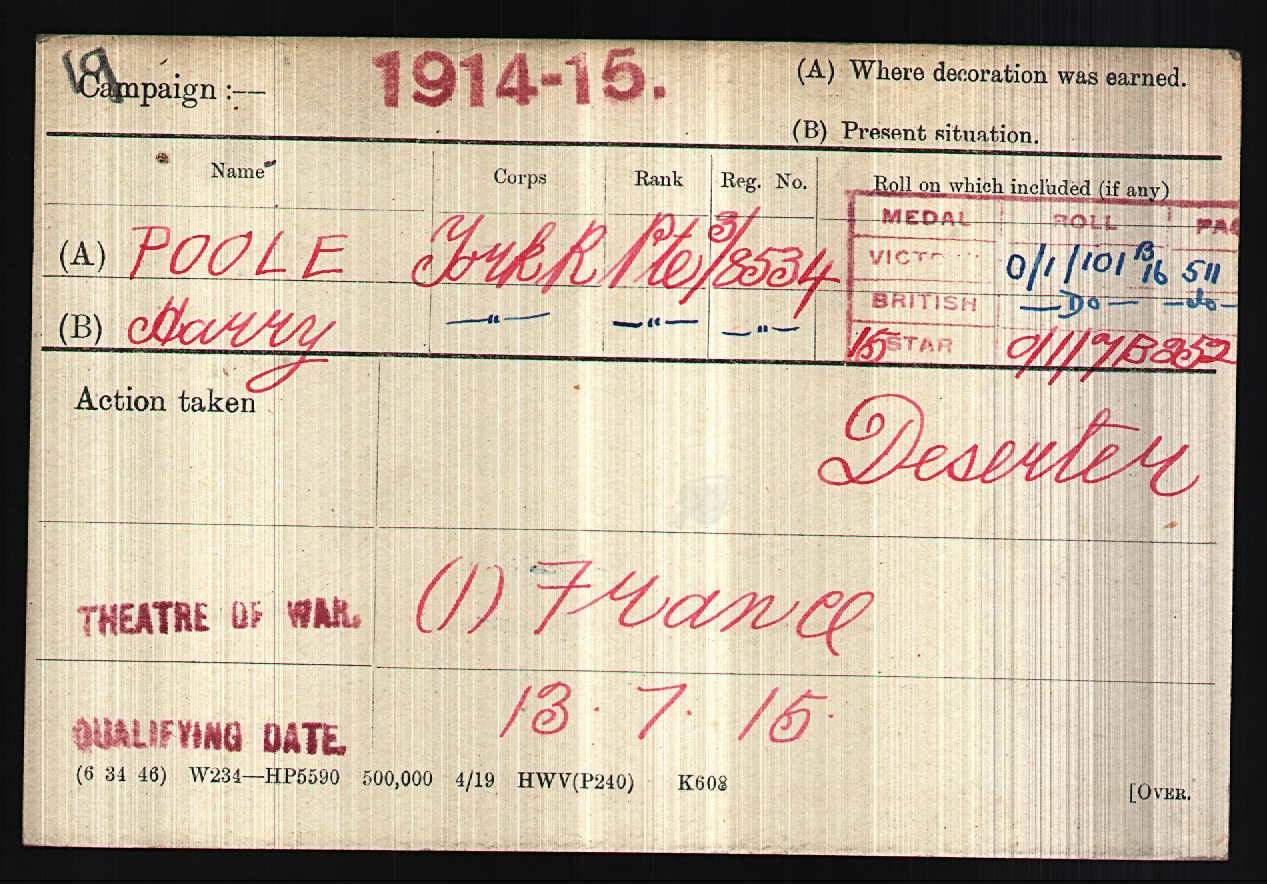 Campaign :—— 1914-15. (A) Where decoration was earned.
(B) Present situation.
Name Corps Rank Reg. No. Roll on which included (if any)
MEDAL ROLL PAG
(A) POOLE York R Pte 3/8534 VICT 0/1/101 B16 511
BRITISH —Do— —do—
(B) Harry —"— —"— —"— 15 STAR 0/1/7B 252
Action taken
Deserter
THEATRE OF WAR. (1) France
QUALIFYING DATE. 13. 7. 15.
(6 34 46) W234—HP5590 500,000 4/19 HWV(P240) K608
[OVER.